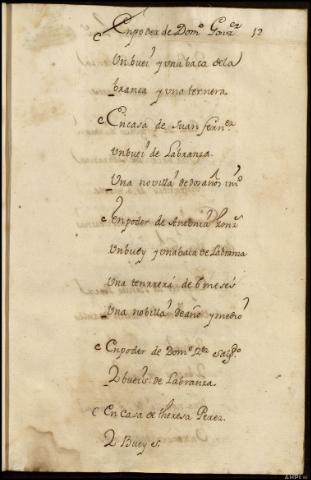 Enpoder de Dom.º Gonz.ez 12
Un buei y una baca dela
branca y una ternera
En casa de Juan fern.ez
un buei de Labranza.
Una novilla de dos años
En poder de Antonia
un buey y una baca de Labranza
una ternera de 6 meses
Una nobilla de año y medio
En poder de Dom.º
2 bueis de Labranza
En Casa de theresa Perez.
2 Bueyes.